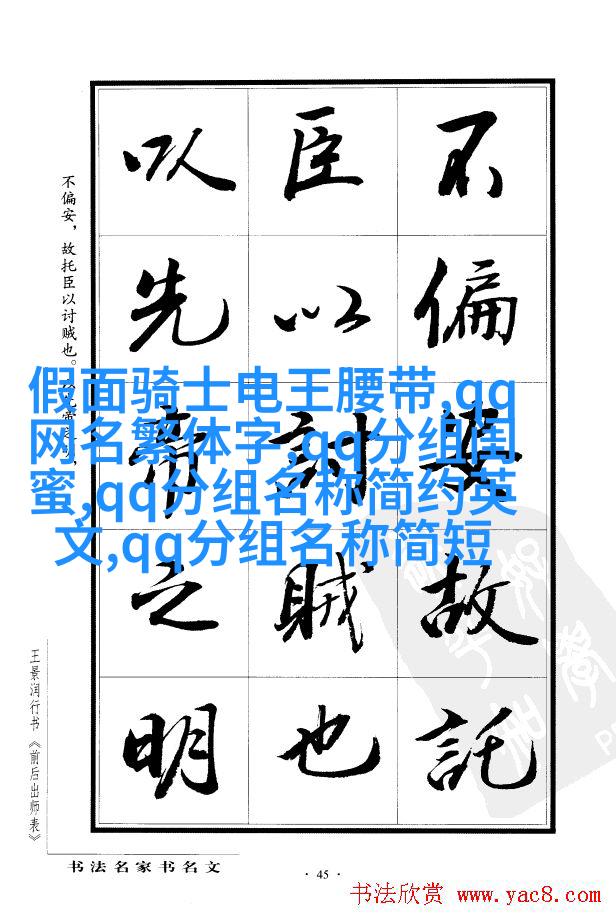 不偏安故託
臣以討賊也
以先帝之明
不偏安，故托臣以讨贼也。
假面骑士电王腰带,qq
网名繁体字,qq分组闺
蜜,qq分组名称简约英
文,qq分组名称简短
王景润行书《前后出师表》
书法名家书名文
· 45 ·
书法欣赏 www.yac8.com